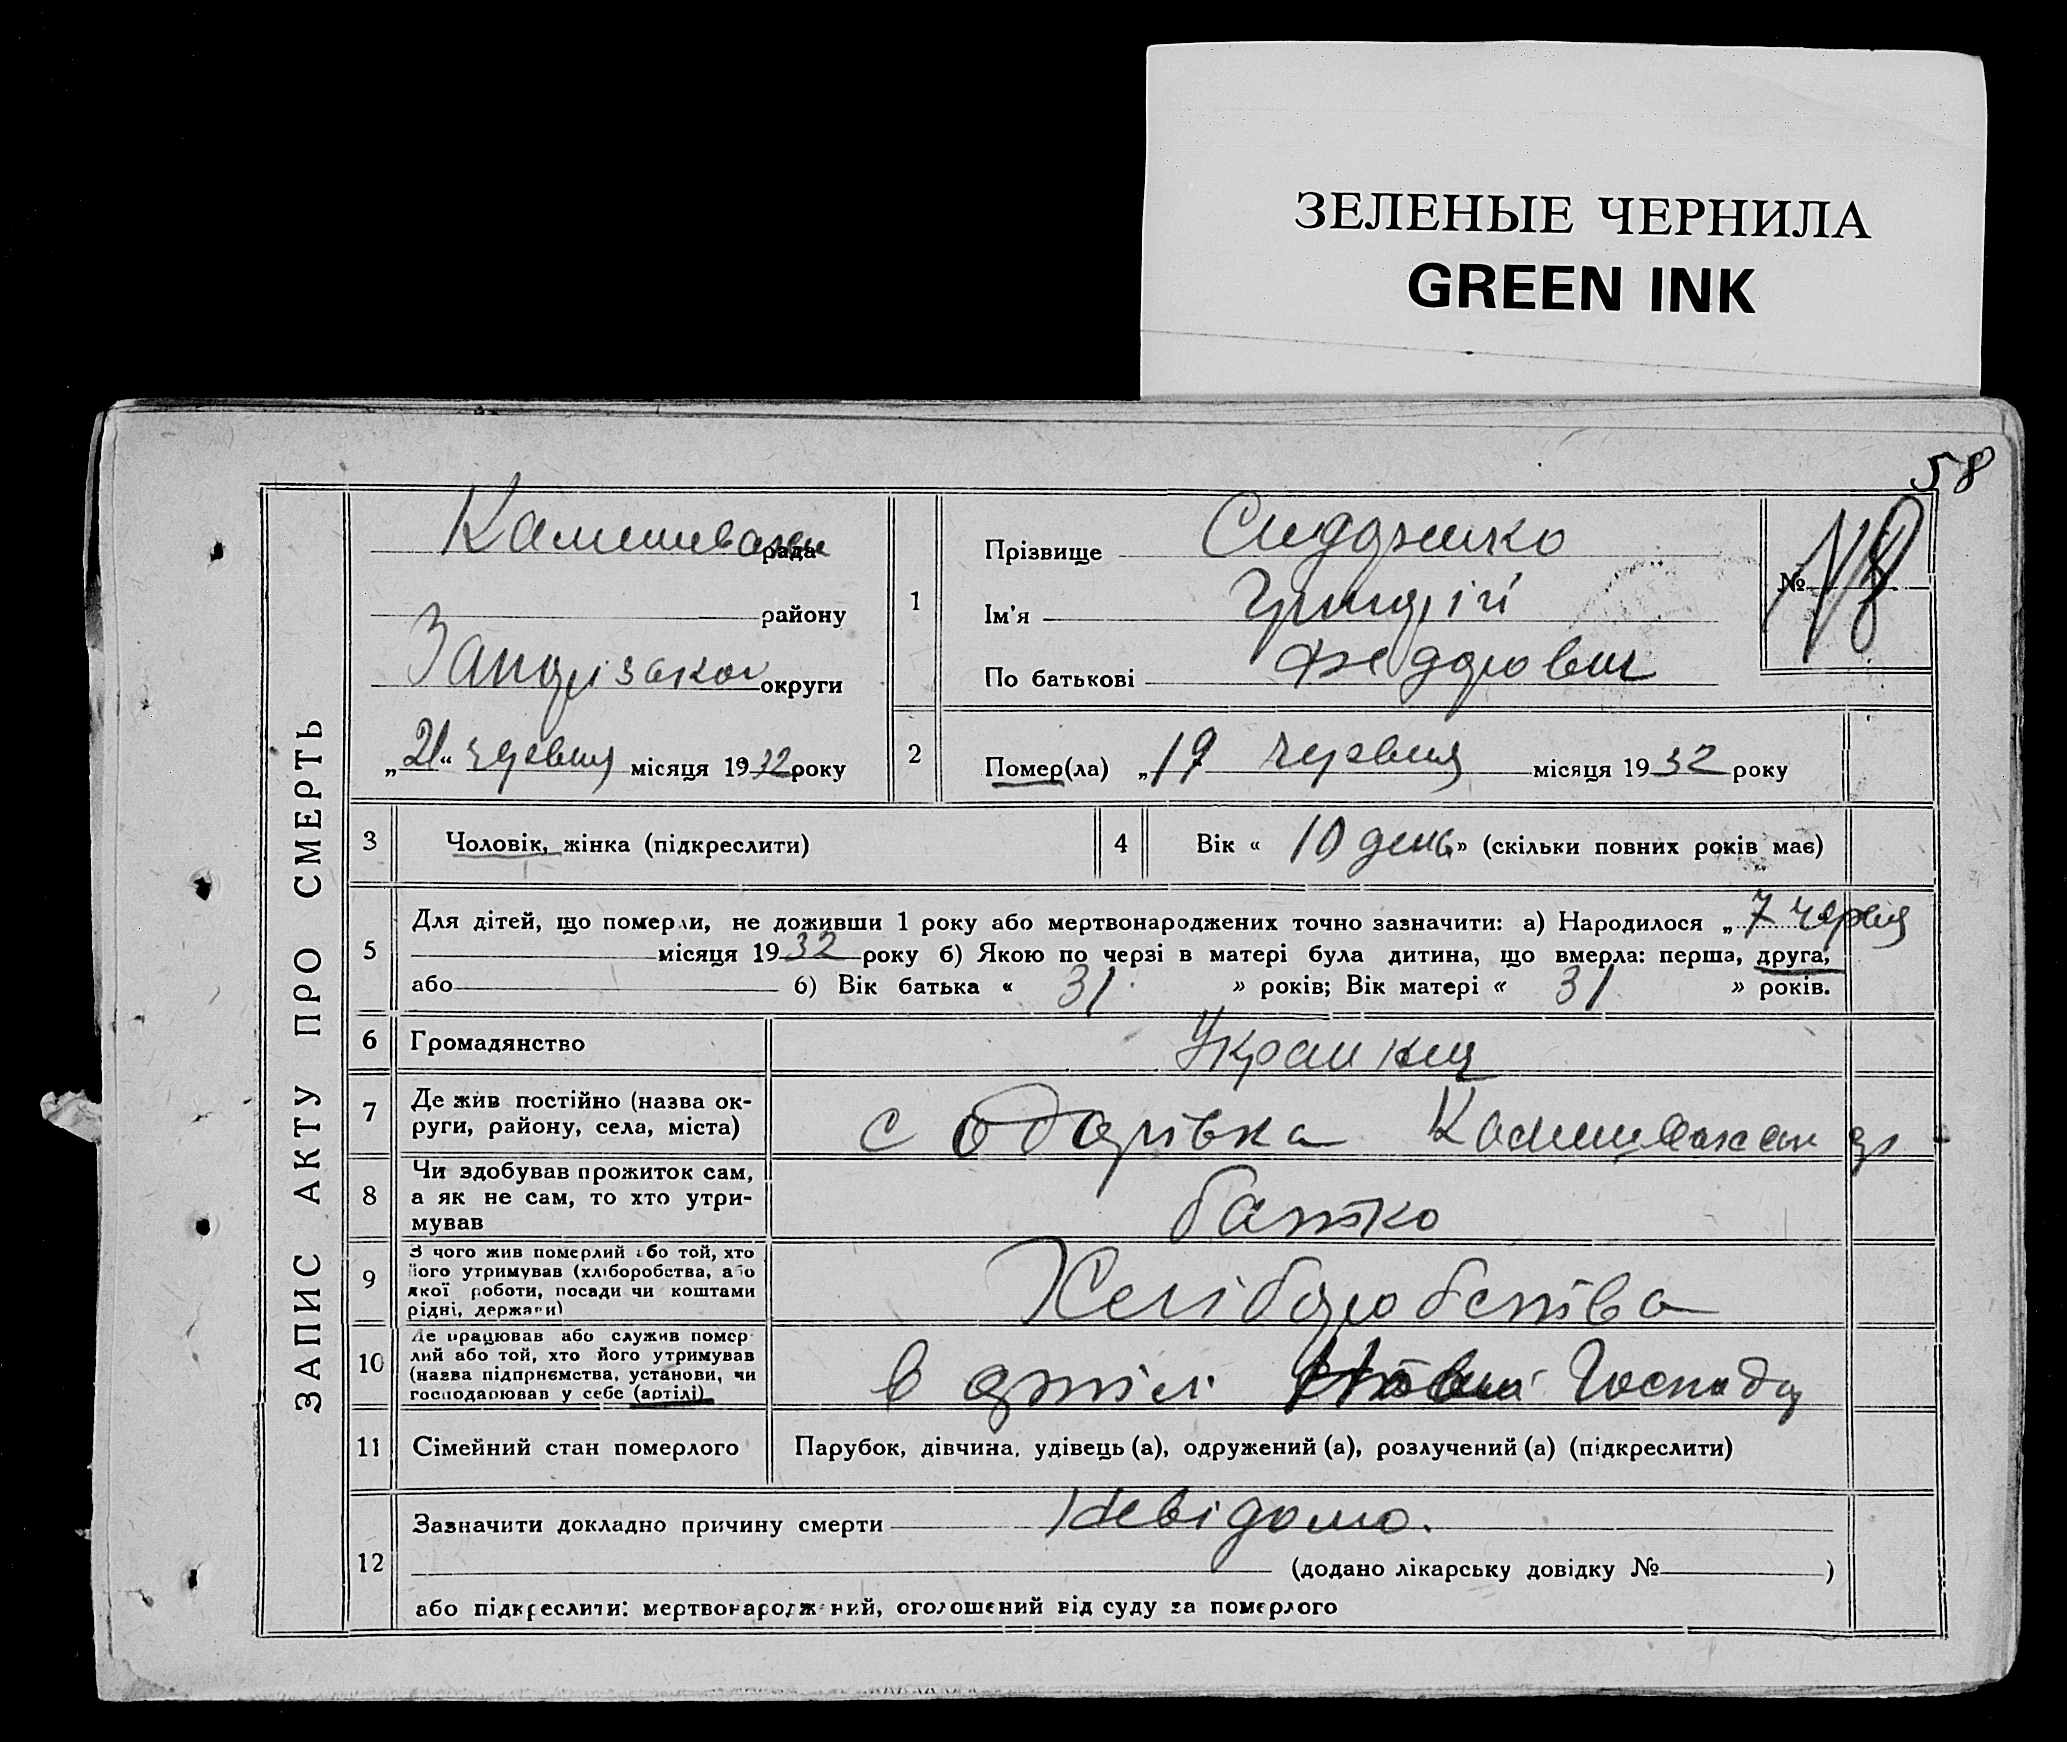 ЗЕЛЕНЫЕ ЧЕРНИЛА
GREEN INK
58
ЗАПИС АКТУ ПРО СМЕРТЬ
рада
району
округи
„21“ червня місяця 1932 року
1
Прізвище Сидоренко
Ім'я Григорій
По батькові Федорович
№ 18
2
Помер(ла) „19 червня місяця 1932 року
3
Чоловік, жінка (підкреслити)
4
Вік « 10 день » (скільки повних років має)
5
Для дітей, що померли, не доживши 1 року або мертвонароджених точно зазначити: а) Народилося „ 7 червня
місяця 1932 року б) Якою по черзі в матері була дитина, що вмерла: перша, друга,
або б) Вік батька « 31 » років; Вік матері « 31 » років.
6
Громадянство
7
Де жив постійно (назва ок-
руги, району, села, міста)
с
8
Чи здобував прожиток сам,
а як не сам, то хто утри-
мував
батько
9
З чого жив померлий або той, хто
його утримував (хліборобства, або
якої роботи, посади чи коштами
рідні, держави)
Хліборобства
10
Де працював або служив помер
лий або той, хто його утримував
(назва підприємства, установи, чи
господарював у себе (артілі)
в артілі
11
Сімейний стан померлого
Парубок, дівчина, удівець (а), одружений (а), розлучений (а) (підкреслити)
12
Зазначити докладно причину смерти Невідомо.
(додано лікарську довідку № )
або підкреслити: мертвонароджений, оголошений від суду за померлого